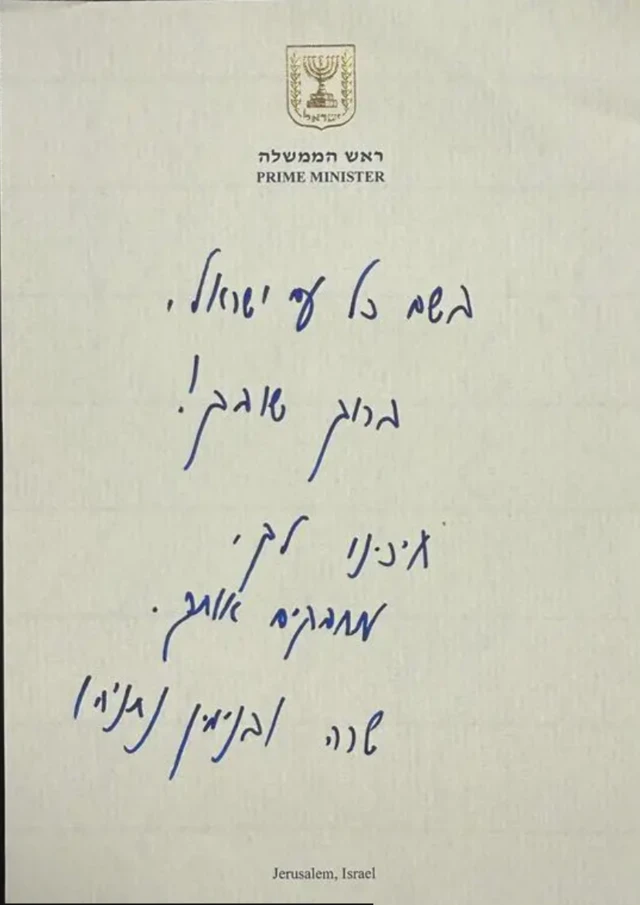 ישראל
ראש הממשלה
PRIME MINISTER
בשם כל עם ישראל,
ברוך שובך!
חיכינו לך,
מחבקים אותך.
שרה ובנימין נתניהו
Jerusalem, Israel